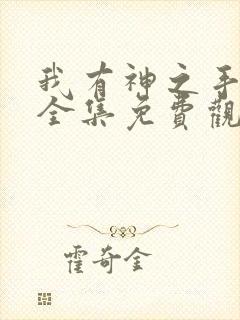 我有神之手
全集免費觀
霍奇金